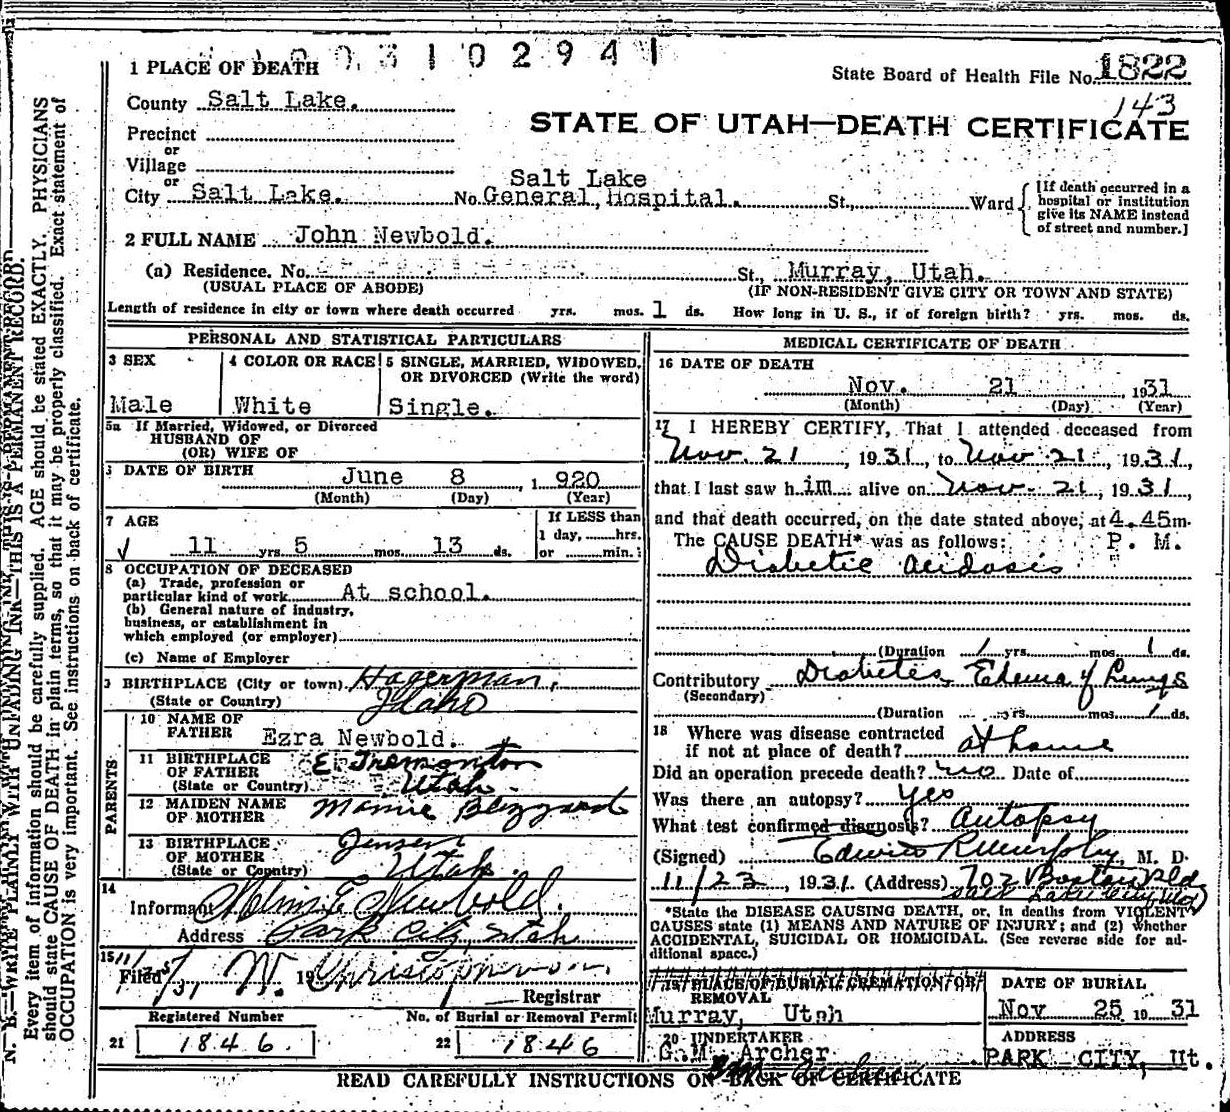 3 1 0 2 9 4 1
1 PLACE OF DEATH
State Board of Health File No. 1822
143
County Salt Lake.
STATE OF UTAH—DEATH CERTIFICATE
Precinct
or
Village
or
City Salt Lake. No. Salt Lake General Hospital. St., Ward
[If death occurred in a hospital or institution give its NAME instead of street and number.]
2 FULL NAME John Newbold.
(a) Residence. No. St., Murray, Utah.
(USUAL PLACE OF ABODE) (IF NON-RESIDENT GIVE CITY OR TOWN AND STATE)
Length of residence in city or town where death occurred yrs. mos. 1 ds. How long in U. S., if of foreign birth? yrs. mos. ds.
PERSONAL AND STATISTICAL PARTICULARS
3 SEX
Male
4 COLOR OR RACE
White
5 SINGLE, MARRIED, WIDOWED, OR DIVORCED (Write the word)
Single.
5a If Married, Widowed, or Divorced
HUSBAND OF
(OR) WIFE OF
DATE OF BIRTH June 8, 1920
(Month) (Day) (Year)
7 AGE
11 yrs. 5 mos. 13 ds.
If LESS than
1 day, hrs.
or min.
8 OCCUPATION OF DECEASED
(a) Trade, profession or
particular kind of work At school.
(b) General nature of industry,
business, or establishment in
which employed (or employer)
(c) Name of Employer
BIRTHPLACE (City or town) Hagerman,
(State or Country) Idaho
PARENTS
10 NAME OF
FATHER Ezra Newbold.
11 BIRTHPLACE
OF FATHER E. Tremonton
(State or Country) Utah
12 MAIDEN NAME
OF MOTHER Mamie Blizzard
13 BIRTHPLACE
OF MOTHER Jensen
(State or Country) Utah.
14
Informant Newbold.
Address Park City, Utah
15
Filed W. Christopherson
Registrar
Registered Number No. of Burial or Removal Permit
21 1846. 22 1846
MEDICAL CERTIFICATE OF DEATH
16 DATE OF DEATH
Nov. 21 1931
(Month) (Day) (Year)
17 I HEREBY CERTIFY, That I attended deceased from
Nov. 21, 1931, to Nov 21, 1931,
that I last saw him alive on Nov. 21, 1931,
and that death occurred, on the date stated above, at 4.45m.
The CAUSE DEATH* was as follows: P. M.
Diabetic acidosis
(Duration 1 yrs. mos. 1 ds.
Contributory Diabetes, Edema of Lungs
(Secondary)
(Duration yrs. mos. 1 ds.
18 Where was disease contracted
if not at place of death? at home
Did an operation precede death? no Date of
Was there an autopsy? yes
What test confirmed diagnosis? Autopsy
(Signed) Edwin R Murphy, M. D.
11/23, 1931. (Address) 702 Boston Bld
Salt Lake City
*State the DISEASE CAUSING DEATH, or, in deaths from VIOLENT
CAUSES state (1) MEANS AND NATURE OF INJURY; and (2) whether
ACCIDENTAL, SUICIDAL OR HOMICIDAL. (See reverse side for ad-
ditional space.)
19 PLACE OF BURIAL CREMATION OR
REMOVAL
Murray, Utah
DATE OF BURIAL
Nov 25 1931
20 UNDERTAKER
G.M. Archer
ADDRESS
PARK CITY, Ut.
READ CAREFULLY INSTRUCTIONS ON BACK OF CERTIFICATE
N. B.—WRITE PLAINLY WITH UNFADING INK—THIS IS A PERMANENT RECORD.
Every item of information should be carefully supplied. AGE should be stated EXACTLY. PHYSICIANS
should state CAUSE OF DEATH in plain terms, so that it may be properly classified. Exact statement of
OCCUPATION is very important. See instructions on back of certificate.